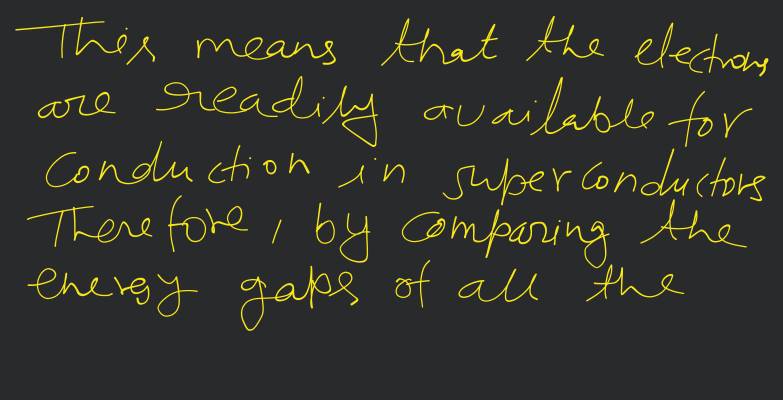 This means that the electrons
are readily available for
conduction in superconductors
Therefore, by comparing the
energy gaps of all the